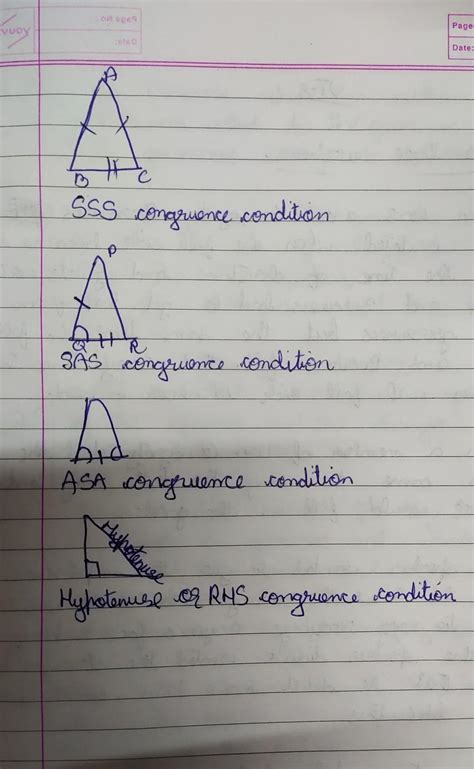 Page No.
Date:
Page
Date:
A
B C
SSS congruence condition
P
Q R
SAS congruence condition
ASA congruence condition
Hypotenuse
Hypotenuse or RHS congruence condition